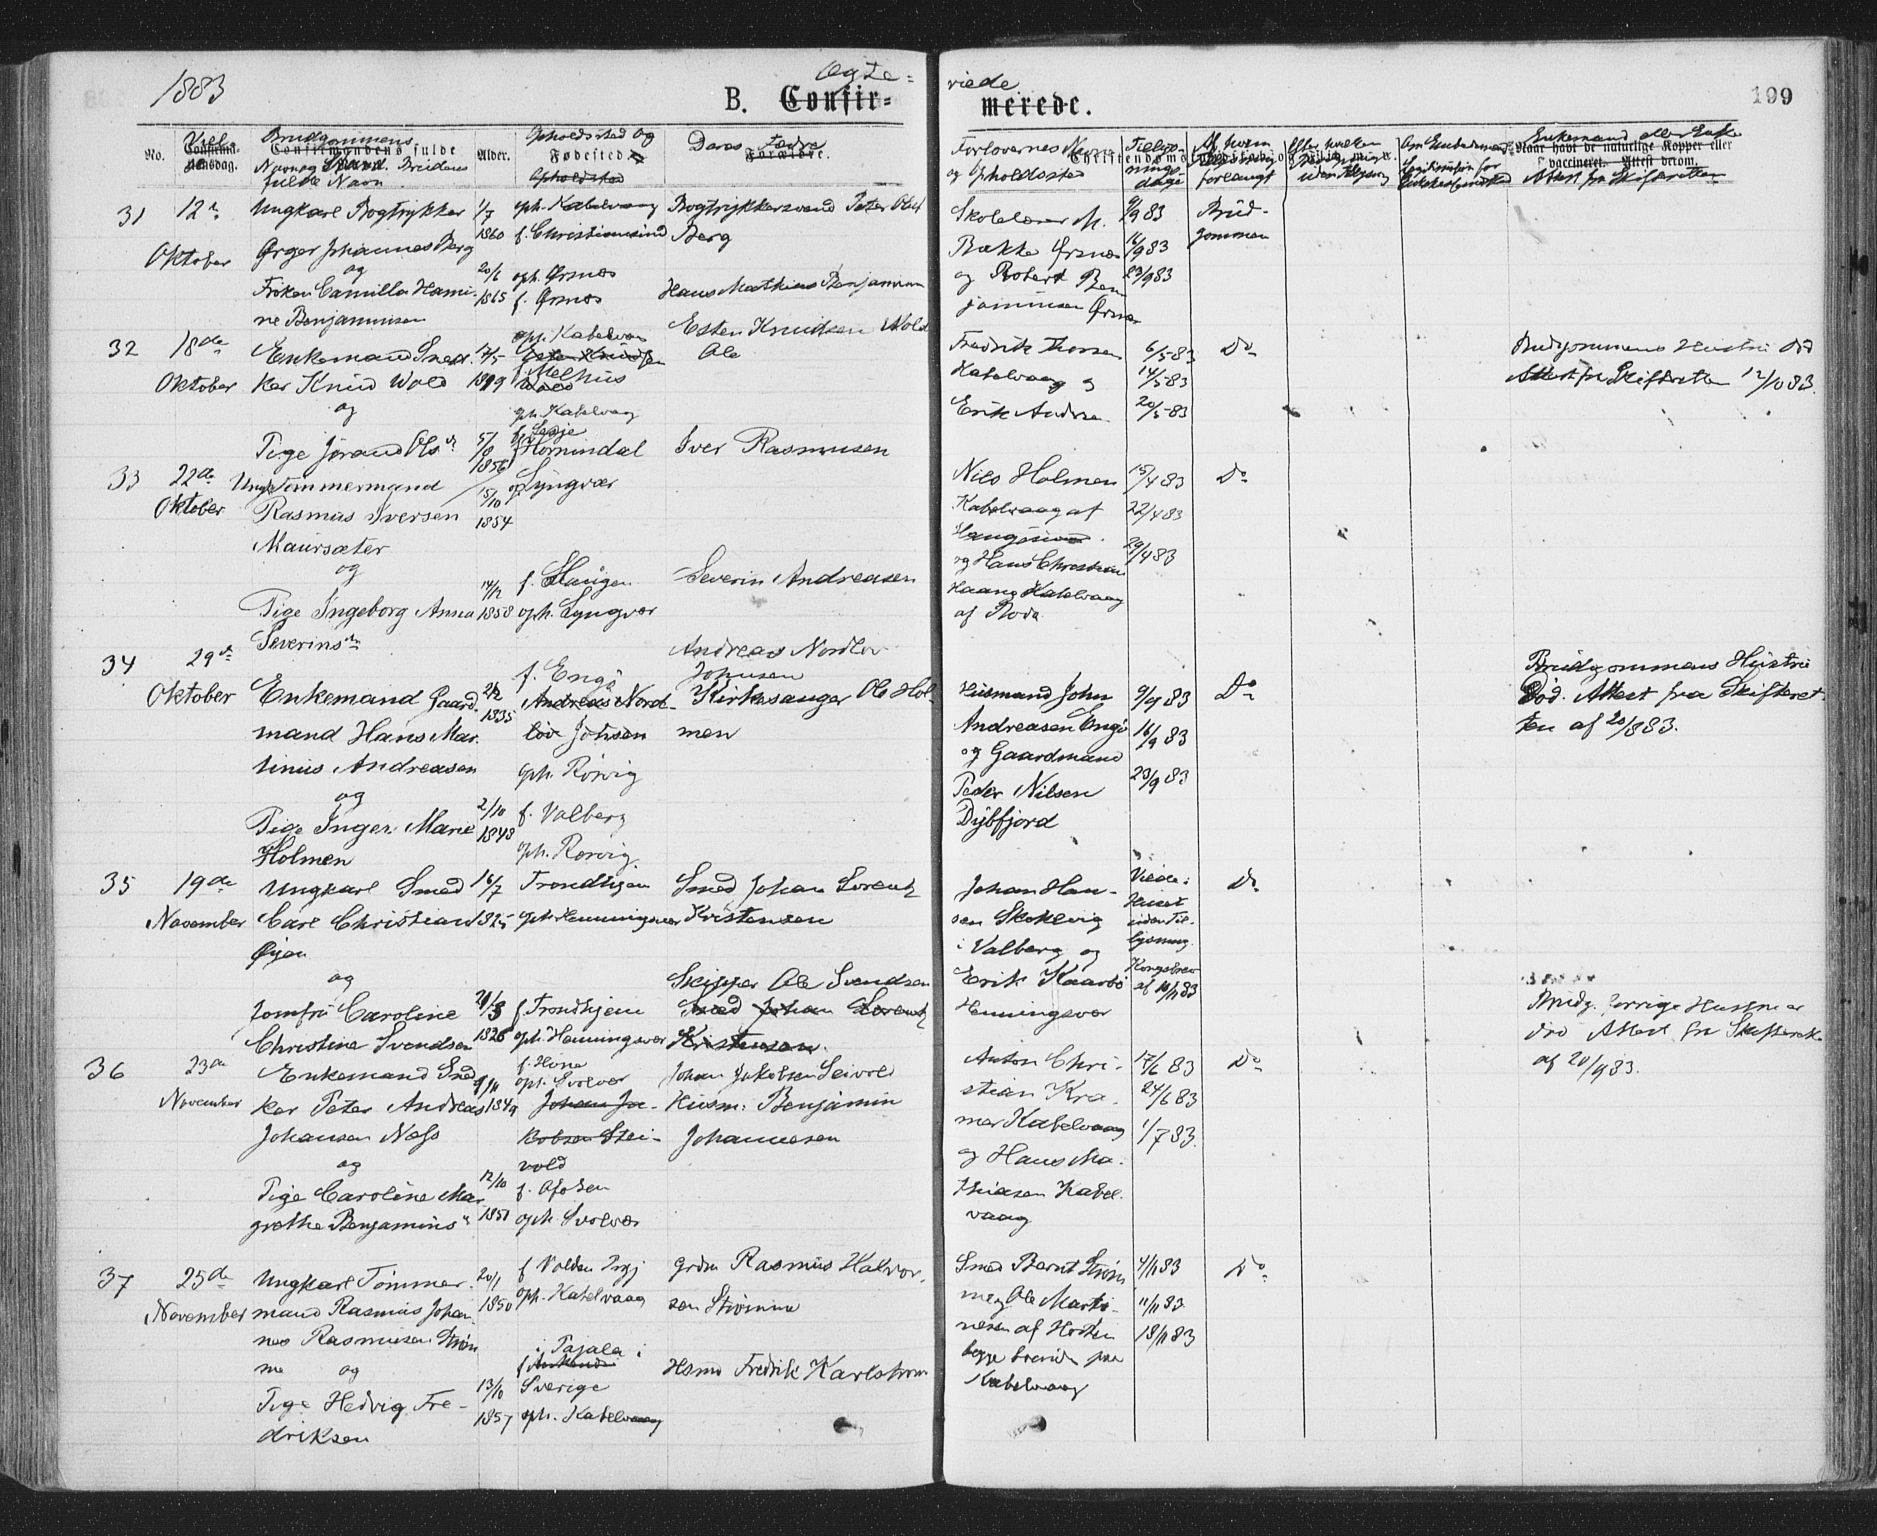 1883
Ægte=
viede
B. Confir= merede.
199
No.
Viel-
Confirma-
tionsdag.
Brudgommens
Confirmandens fulde
Navn og Stand. Brudens
fulde Navn
Alder.
Opholdsted og
Fødested
Opholdsted
Deres Fædre
Forældre.
Forlovernes Navn
og Opholdssted
Tillys-
nings-
dage
Af hvem
forlangt
Enkemand eller Enke
Naar havt de naturlige Kopper eller
vaccineret. Attest derom.
Attest fra Skifteretten
31
12te
Oktober
Ungkarl Bogtrykker
Ørger Johannes Berg
og
Frøken Camilla Hansi-
ne Benjaminsen
1/7
1860
20/6
1865
oph. Kabelvaag
f. Christianssund
oph. Ørsnæs
f. Ørsnæs
Bogtrykkersvend Peter Olai
Berg
Hans Mathias Benjaminsen
Skolelærer M.
Bække Ørsnæs
og Robert Ben
jaminsen Ørsnæs
9/9 83
16/9 83
23/9 83
Brud-
gommen
32
18de
Oktober
Enkemand Sned-
ker Knud Wold
og
Tige Jørand Ols dt
17/5
5/8
1856
oph. Kabelvaag
Esten Knudsen
Wold
f. Melhus
oph. Kabelvaag
f. Lesje
Esten Knudsen Wold
Ole
Fredrik Thorsen
Kabelvaag og
Erik Andersen
6/5 83
14/5 83
20/5 83
Do
Brudgommens Hustru død
Attest fra Skifteretten 12/10 83.
33
22de
Oktober
Ungk. Tømmermand
Rasmus Iversen
Maursæter
og
Tige Ingeborg Anna
Severins dt
15/10
1854
14/12
1858
f. Hornindal
op. Lyngvær
f. Haugen
oph. Lyngvær
Iver Rasmusen
Severin Andreasen
Nils Holmen
Kabelvaag af
og Hans Christian
Haang Kabelvaag
af Rode
15/4 83
22/4 83
29/4 83
Do
34
29de
Oktober
Enkemand Gaard-
mand Hans Mar-
tinius Andreasen
og
Tige Inger Marie
Holmen
2/2
1835
2/10
1848
f. Engø
Andreas Nord-
løv Johsen
oph. Rørvig
f. Valberg
oph. Rørvig
Andreas Nordløv
Johnsen
Kirkesanger Ole Hol-
men
Husmand John
Andreasen Engø
og Gaardmand
Peder Nilsen
Dybfjord
9/9 83
16/9 83
23/9 83
Do
Brudgommens Hustru
Død. Attest fra Skifteret-
ten af 20/8 83.
35
19de
November
Ungkarl Smed
Carl Christian
Øyen
og
Jomfru Caroline
Christine Svendsen
16/7
1825
1826
Trondhjem
oph. Henningsvær
f. Trondhjem
oph. Henningsvær
Smed Johan Lorentz
Kristensen
Skipper Ole Svendsen
Smed Johan Lorentz
Kristensen
Johan Han-
sen Skokevig
i Valberg og
Erik Kaarbø
Henningsvær
Viede i
Huset
uden Til-
lysning.
Kongebrev
af 10/11 83
Do
Brudg. forrige Hustru er
død Attest fra Skifteret
af 20/9 83.
36
23de
November
Enkemand Sned-
ker Peter Andreas
Johansen Næss
og
Tige Caroline Mar-
grethe Benjamins dt
9/11
1849
12/10
1851
f. Hevne
oph. Svolvær
Johan Ja-
kobsen Stei-
vold
f. Ofoten
oph. Svolvær
Johan Jakobsen Leivold
Husm. Benjamin
Johannesen
Anton Chri-
stian Kra-
mer Kabelvaag
og Hans Ma-
thiasen Kabel-
vaag
17/6 83
24/6 83
1/7 83.
Do
37
25de
November
Ungkarl Tømmer-
mand Rasmus Johan-
nes Rasmusen Strøm-
me og
Tige Hedvig Fre-
driksen
20/1
1850
13/10
1857
f. Volden
oph. Kabelvaag
i Pajala i
Sverige
oph. Kabelvaag
Grdm Rasmus Halvor-
sen Strømme
Hsmd Fredrik Karlstrøm
Smed Bernt Strøm
me og Ole Marti-
nesen af Horten
begge boende paa
Kabelvaag
4/11 83
11/11 83.
18/11 83
Do